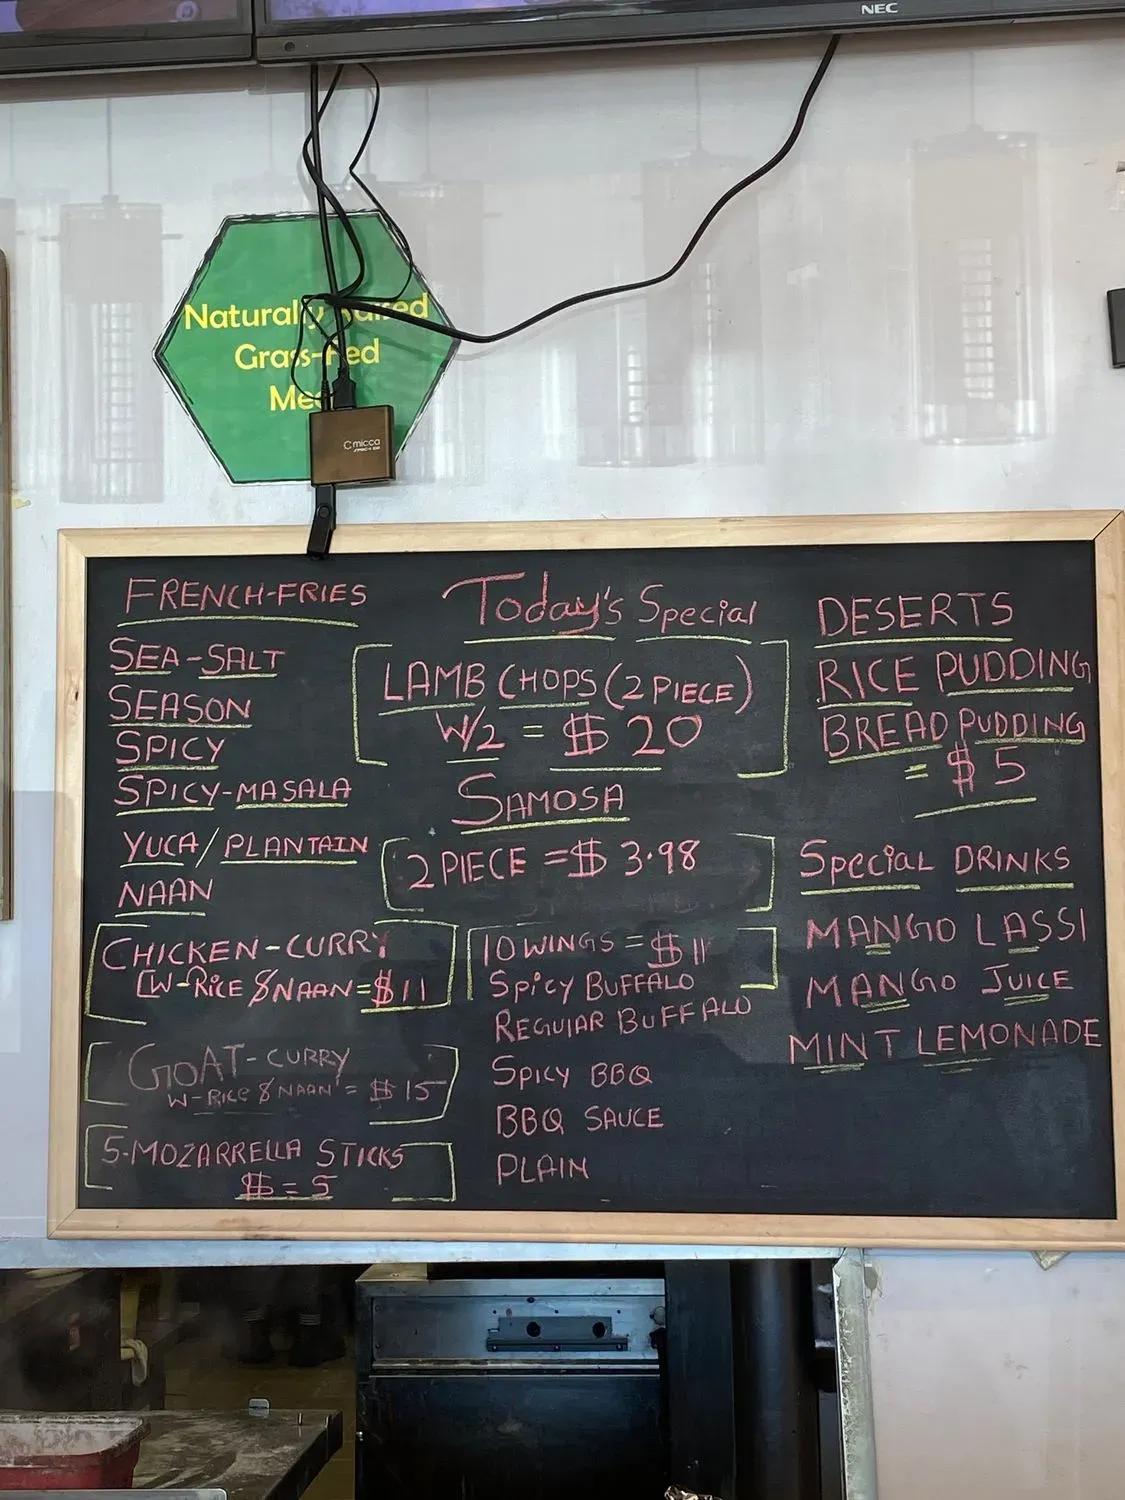 NEC
Naturally
Grass-Fed
micca
FRENCH-FRIES
SEA-SALT
SEASON
SPICY
SPICY-MASALA
YUCA/PLANTAIN
NAAN
CHICKEN-CURRY
[W-RICE & NAAN=$11
GOAT-CURRY
W-RICE & NAAN = $15
5-MOZARRELLA STICKS
$=5
Today's Special
LAMB CHOPS (2 PIECE)
W/2 = $20
SAMOSA
2 PIECE =$ 3.98
10 WINGS = $11
SPICY BUFFALO
REGULAR BUFFALO
SPICY BBQ
BBQ SAUCE
PLAIN
DESERTS
RICE PUDDING
BREAD PUDDING
= $5
Special DRINKS
MANGO LASSI
MANGO JUICE
MINT LEMONADE